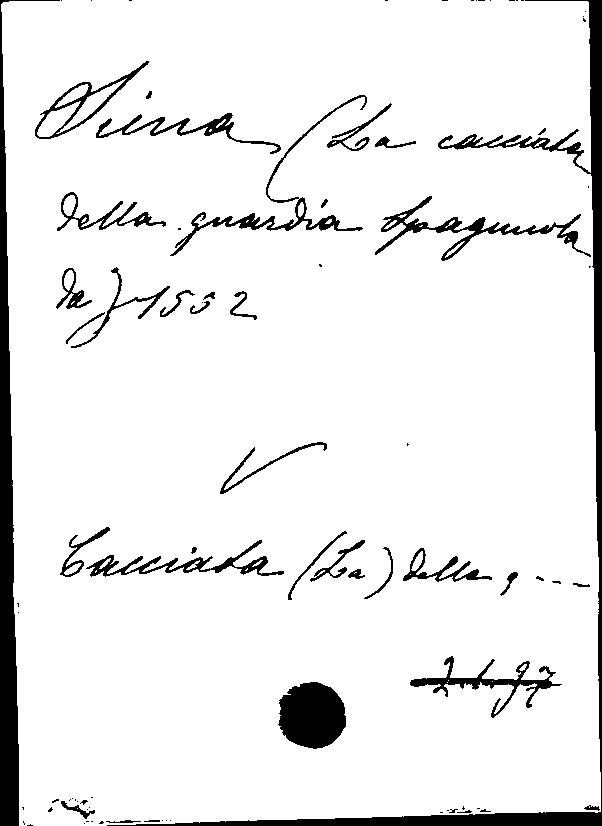 Siena (La cacciata
della guardia spagnuola
da) 1552
V
Cacciata (La) della g ---
2.1.97